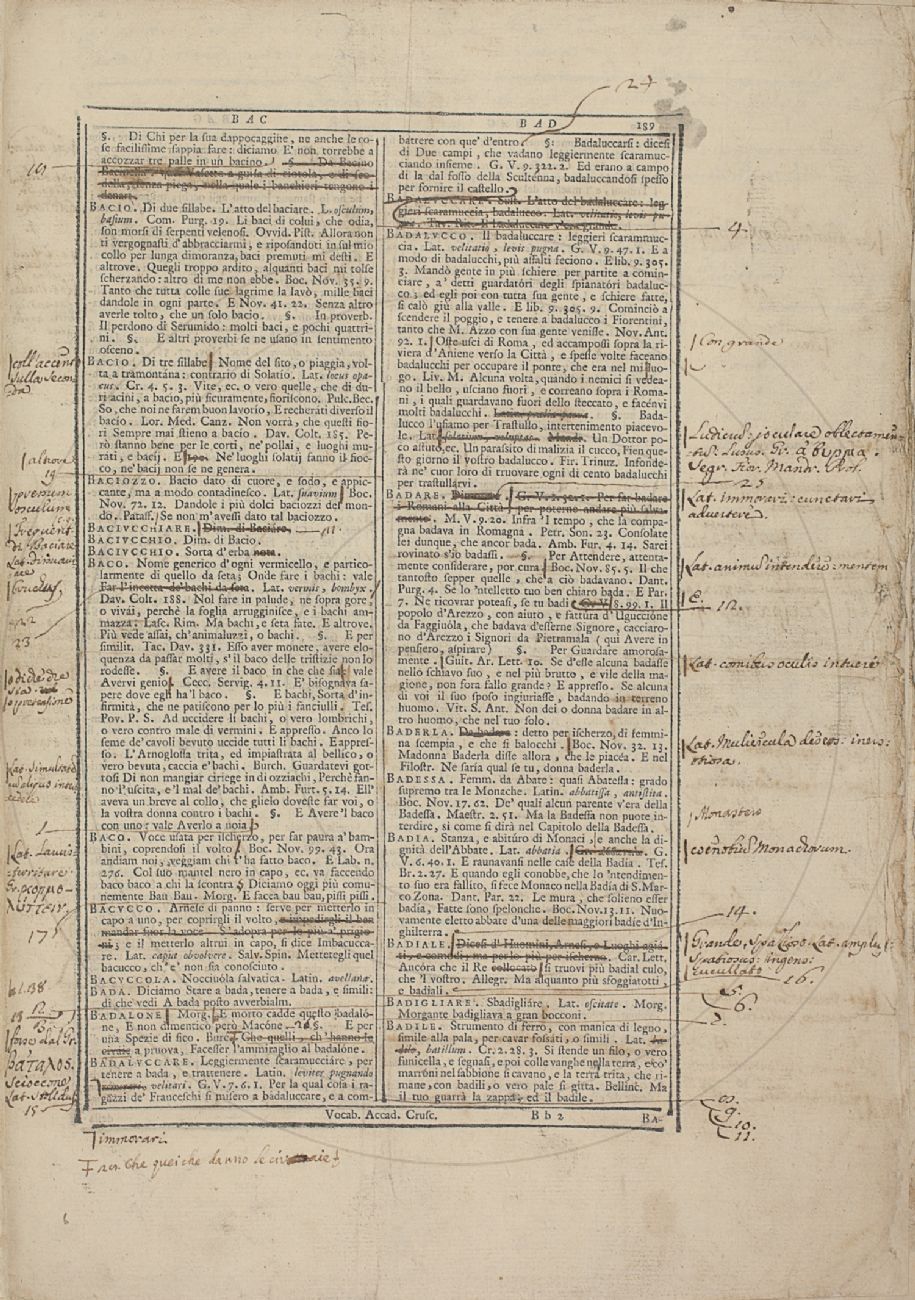 BAC
BAD
189
24
§. Di Chi per la sua dappocaggine, ne anche le co-
se facilissime sappia fare: diciamo E' non torrebbe a
accozzar tre palle in un bacino. §. Da Bacino
denari.
BACIO. Di due sillabe. L'atto del baciare. L. osculum,
basium. Com. Purg. 19. Li baci di colui, che odia,
son morsi di serpenti velenosi. Ovvid. Pist. Allora non
ti vergognasti d'abbracciarmi, e riposandoti in sul mio
collo per lunga dimoranza, baci premuti mi desti. E
altrove. Quegli troppo ardito, alquanti baci mi tolse
scherzando: altro di me non ebbe. Boc. Nov. 35. 9.
Tanto che tutta colle sue lagrime la lavò, mille baci
dandole in ogni parte. E Nov. 41. 22. Senza altro
averle tolto, che un solo bacio. §. In proverb.
Il perdono di Serumido: molti baci, e pochi quattri-
ni. §. E altri proverbi se ne usano in sentimento
osceno.
BACIO. Di tre sillabe Nome del sito, o piaggia, vol-
ta a tramontana: contrario di Solatio. Lat. locus opa-
cus. Cr. 4. 5. 3. Vite, ec. o vero quelle, che di du-
ri acini, a bacio, più sicuramente, fioriscono. Pulc. Bec.
So, che noi ne sarem buon lavorio, E recherati diverso il
bacio. Lor. Med. Canz. Non vorrà, che questi fio-
ri Sempre mai stieno a bacio. Dav. Colt. 185. Pe-
rò stanno bene per le corti, ne' pollai, e luoghi mu-
rati, e bacij. E Ne' luoghi solatij fanno il fioc-
co, ne' bacij non se ne genera.
BACIOZZO. Bacio dato di cuore, e sodo, e appic-
cante, ma a modo contadinesco. Lat. suavium Boc.
Nov. 72. 12. Dandole i più dolci baciozzi del mon-
do. Pataff. Se non m'avessi dato tal baciozzo.
BACIUCCHIARE. Dim. di Baciare. 11.
BACIUCCHIO. Dim. di Bacio.
BACIUCCHIO. Sorta d'erba nota.
BACO. Nome generico d'ogni vermicello, e partico-
larmente di quello da seta; Onde fare i bachi: vale
Far l'incetta de' bachi da seta. Lat. vermis, bombyx.
Dav. Colt. 188. Nol fare in palude, ne sopra gore,
o vivai, perchè la foglia arrugginisce, e i bachi am-
mazza: Lasc. Rim. Ma bachi, e seta fate. E altrove.
Più vede assai, ch'animaluzzi, o bachi. §. E per
similit. Tac. Dav. 331. Esso aver monere, avere elo-
quenza da passar molti, s'il baco delle tristizie non lo
rodesse. §. E avere il baco in che che sia: vale
Avervi genio. Cecc. Servig. 4. 11. E' bisognava sa-
pere dove egli ha 'l baco. §. E bachi, Sorta d'in-
firmità, che ne patiscono per lo più i fanciulli. Tes.
Pov. P. S. Ad uccidere li bachi, o vero lombrichi,
o vero contra male di vermini. E appresso. Anco lo
seme de' cavoli bevuto uccide tutti li bachi. E appres-
so. L'Arnoglossa trita, ed impiastrata al bellico, o
vero bevuta, caccia e' bachi. Burch. Guardatevi got-
tosi Di non mangiar ciriege in di ozziachi, Perchè fan-
no l'uscita, e 'l mal de' bachi. Amb. Furt. 5. 14. Ell'
aveva un breve al collo, che glielo doveste far voi, o
la vostra donna contro i bachi. §. E Avere 'l baco
con uno: vale Averlo a noia.
BACO. Voce usata per ischerzo, per far paura a' bam-
bini, coprendosi il volto. Boc. Nov. 99. 43. Ora
andiam noi, veggiam chi t'ha fatto baco. E Lab. n.
276. Col suo mantel nero in capo, ec. va faccendo
baco baco a chi la scontra § Diciamo oggi più comu-
nemente Bau Bau. Morg. E facca bau bau, pissi pissi.
BACUCCO. Arnese di panno: serve per metterlo in
capo a uno, per coprirgli il volto, e impedirgli il ben
mandar fuor la voce. S'adopra per lo più a' prigio-
ni; e il metterlo altrui in capo, si dice Imbacucca-
re. Lat. caput obvolvere. Salv. Spin. Mettetegli quel
bacucco, ch'e' non sia conosciuto.
BACUCCOLA. Nocciuola salvatica. Latin. avellana.
BADA. Diciamo Stare a bada, tenere a bada, e simili:
di che vedi A bada posto avverbialm.
BADALONE Morg. E morto cadde questo badaló-
ne, E non dimentico però Macóne. §. E per
una Spezie di fico. Burc. Che quelli, ch'hanno le
civaie a pruova, Facesser l'ammiraglio al badalóne.
BADALUCCARE. Leggiermente scaramucciare, per
tenere a bada, e trattenere. Latin. leviter pugnando
velitari. G. V. 7. 6. 1. Per la qual cosa i ra-
gazzi de' Franceschi si misero a badaluccare, e a com-
battere con que' d'entro. §. Badaluccarsi: dicesi
di Due campi, che vadano leggiermente scaramuc-
ciando insieme. G. V. 9. 322. 2. Ed erano a campo
di là dal fosso della Scultenna, badaluccandosi spesso
per fornire il castello.
BADALUCCARE. Sust. L'atto del badaluccare: leg-
gieri scaramuccia, badalucco. Lat. velitatio, levis pu-
BADALUCCO. Il badaluccare: leggieri scarammuc-
cia. Lat. velitatio, levis pugna. G. V. 9. 47. 1. E a
modo di badalucchi, più assalti feciono. E lib. 9. 305.
3. Mandò gente in più schiere per partite a comin-
ciare, a' detti guardatóri degli spianatóri badaluc-
co; ed egli poi con tutta sua gente, e schiere fatte,
si calò giù alla valle. E lib. 9. 305. 9. Cominciò a
scendere il poggio, e tenere a badalucco i Fiorentini,
tanto che M. Azzo con sua gente venisse. Nov. Ant.
92. 1. Oste uscì di Roma, ed accamposi sopra la ri-
viera d'Aniene verso la Città, e spesse volte faceano
badalucchi per occupare il ponte, che era nel miluo-
go. Liv. M. Alcuna volta, quando i nemici si vedea-
no il bello, usciano fuori, e correano sopra i Roma-
ni, i quali guardavano fuori dello steccato, e facénvi
molti badalucchi. §. Bada-
lucco l'usiamo per Trastullo, intertenimento piacevo-
le. Lat. solatium, voluptas. Un Dottor po-
co assuto, ec. Un parasito di malizia il cucco, Fien que-
sto giorno il vostro badalucco. Fir. Trinuz. Infonde-
rà ne' cuor loro di truovare ogni dì cento badalucchi
per trastullarvi.
BADARE. Dimorare G. V. 2. 50. 1. Per far badare
i Romani alla Città per poterne andare più salva-
mente. M. V. 9. 20. Infra 'l tempo, che la compa-
gna badava in Romagna. Petr. Son. 23. Consolate
lei dunque, che ancor bada. Amb. Fur. 4. 14. Sarei
rovinato s'io badassi. §. Per Attendere, attenta-
mente considerare, por cura. Boc. Nov. 85. 5. Il che
tantosto sepper quelle, che a ciò badavano. Dant.
Purg. 4. Se lo 'ntelletto tuo ben chiaro bada. E Par.
7. Ne ricovrar poteasi, se tu badi G. V. 8. 99. 1. Il
popolo d'Arezzo, con aiuto, e fattura d'Uguccione
da Faggiuóla, che badava d'esserne Signore, cacciaro-
no d'Arezzo i Signori da Pietramala ( qui Avere in
pensero, aspirare ) §. Per Guardare amorosa-
mente. Guit. Ar. Lett. 10. Se d'esse alcuna badasse
nello schiavo suo, e nel più brutto, e vile della ma-
gione, non fora fallo grande? E appresso. Se alcuna
di voi il suo sposo ingiuriasse, badando in terreno
huomo. Vit. S. Ant. Non dei o donna badare in al-
tro huomo, che nel tuo solo.
BADERLA. Da badare: detto per ischerzo, di femmi-
na scempia, e che si balocchi. Boc. Nov. 32. 13.
Madonna Baderla disse allora, che le piacéa. E nel
Filostr. Ne saria qual se tu, donna baderla.
BADESSA. Femm. da Abate: quasi Abatessa: grado
supremo tra le Monache. Latin. abbatissa, antistita.
Boc. Nov. 17. 62. De' quali alcun parente v'era della
Badessa. Maestr. 2. 51. Ma la Badessa non puote in-
terdire, si come si dirà nel Capitolo della Badessa.
BADIA. Stanza, e abitúro di Monaci, e anche la di-
gnità dell'Abbate. Lat. abbatia. G.
V. 6. 40. 1. E raunavansi nelle case della Badia. Tes.
Br. 2. 27. E quando egli conobbe, che lo 'ntendimen-
to suo era fallito, si fece Monaco nella Badia di S. Mar-
co Zona. Dant. Par. 22. Le mura, che solieno esser
badia, Fatte sono spelonche. Boc. Nov. 13. 11. Nuo-
vamente eletto abbate d'una delle maggiori badie d'In-
ghilterra.
BADIALE. Dicesi d'Huomini, Arnesi, e Luoghi agia-
ti, e comodi, ma per lo più per ischerzo. Car. Lett.
Ancóra che il Re collocato si truovi più badial culo,
che 'l vostro. Allegr. Ma alquanto più sfoggiatotti,
e badiali.
BADIGLIARE. Sbadigliáre, Lat. oscitare. Morg.
Morgante badigliava a gran bocconi.
BADILE. Strumento di ferro, con manica di legno,
simile alla pala, per cavar fossati, o simili. Lat. ba-
dile, batillum. Cr. 2. 28. 3. Si stende un filo, o vero
funicella, e segnasi, e poi colle vanghe nella terra, e co'
marróni nel sabbione si cavano, e la terra trita, che ri-
mane, con badili, o vero pale si gitta. Bellinc. Ma
il tuo guarrà la zappa, ed il badile.
Vocab. Accad. Crusc.
B b 2
BA-
coll'accento
sulla secon
da
17
4.
Con grande
25
Lat. immorari: cunctari
Lat. animum intendere: mentem
12.
Lat. comibus oculis intueri
Monastero
coenobium Monachorum.
14.
16.
5.
6.
9.
10.
11.
immorari
che quei che danno le